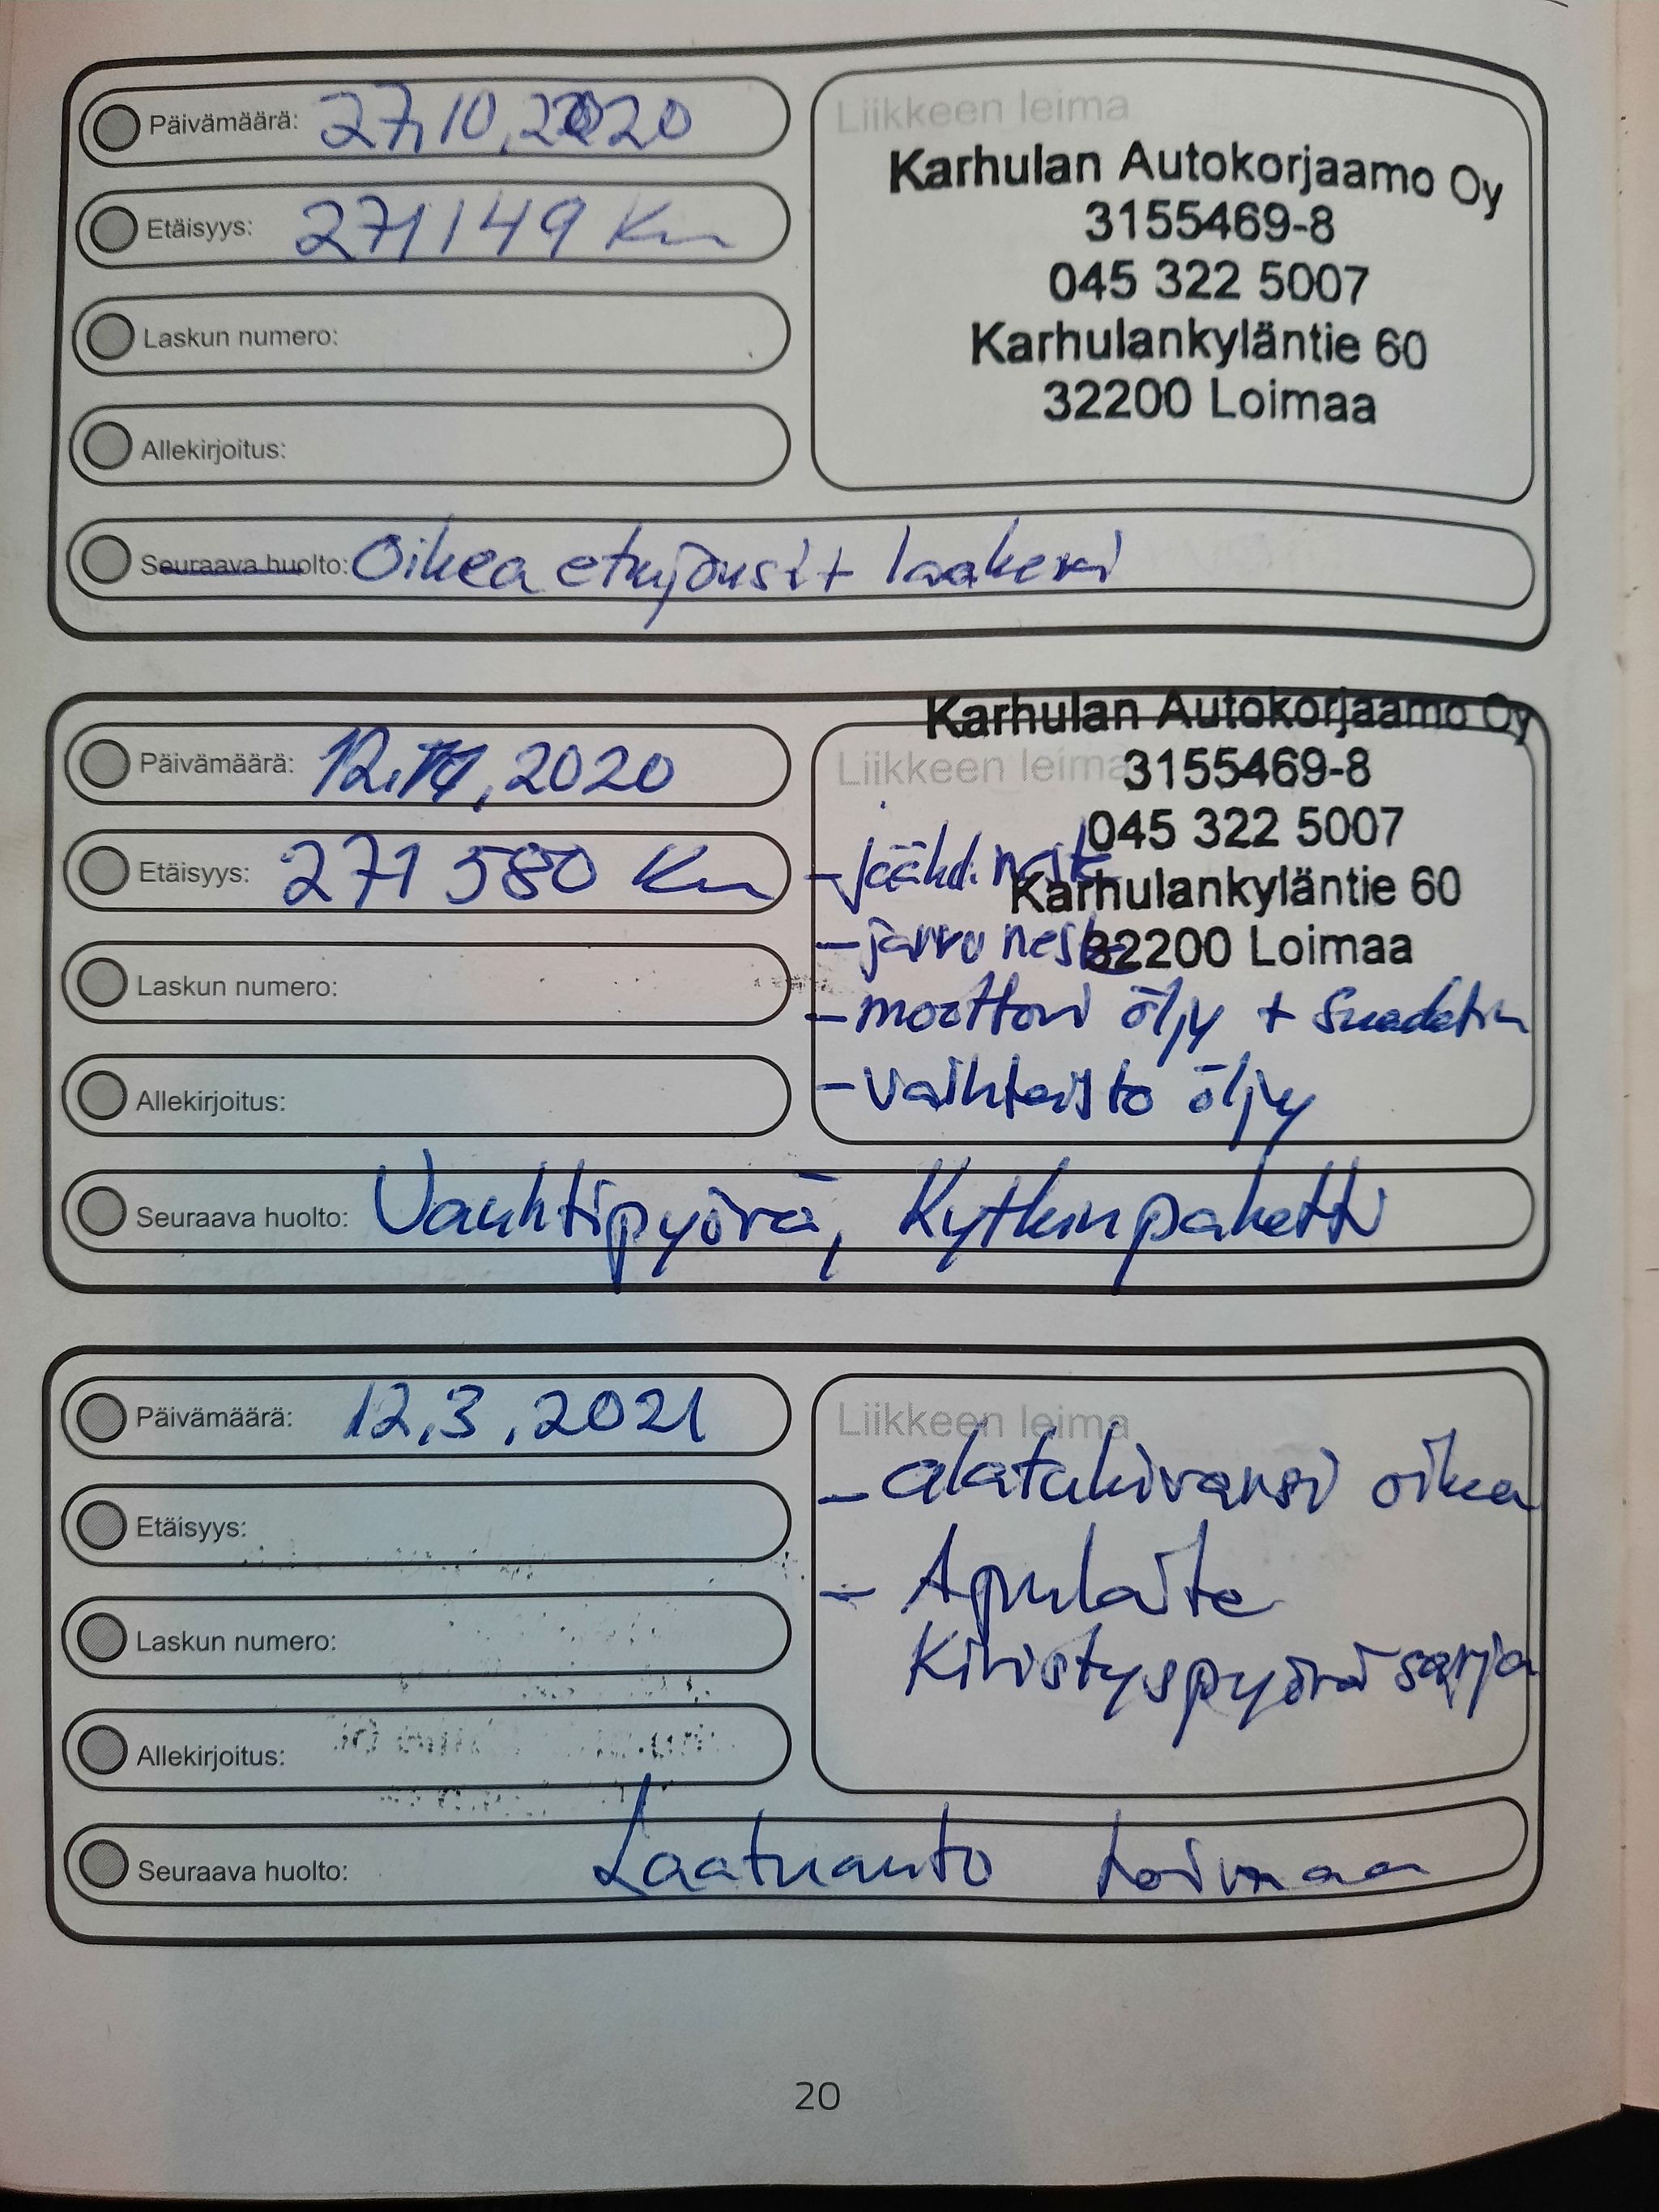 Päivämäärä: 27.10.2020
Etäisyys: 271149 Km
Laskun numero:
Allekirjoitus:
Liikkeen leima
Karhulan Autokorjaamo Oy
3155469-8
045 322 5007
Karhulankyläntie 60
32200 Loimaa
Seuraava huolto: Oikea etujousi + laakeri
Päivämäärä: 12.11.2020
Etäisyys: 271 580 Km
Laskun numero:
Allekirjoitus:
Karhulan Autokorjaamo Oy
Liikkeen leima
3155469-8
045 322 5007
- jäähd. neste
Karhulankyläntie 60
- jarru neste
32200 Loimaa
- moottori öljy + suodatin
- vaihteisto öljy
Seuraava huolto: Vauhtipyörä, Kytkinpaketti
Päivämäärä: 12.3.2021
Etäisyys:
Laskun numero:
Allekirjoitus:
Liikkeen leima
- alatukivarsi oikea
- Apulaite
Kiristyspyörä sarja
Seuraava huolto: Laatuauto Loimaa
20